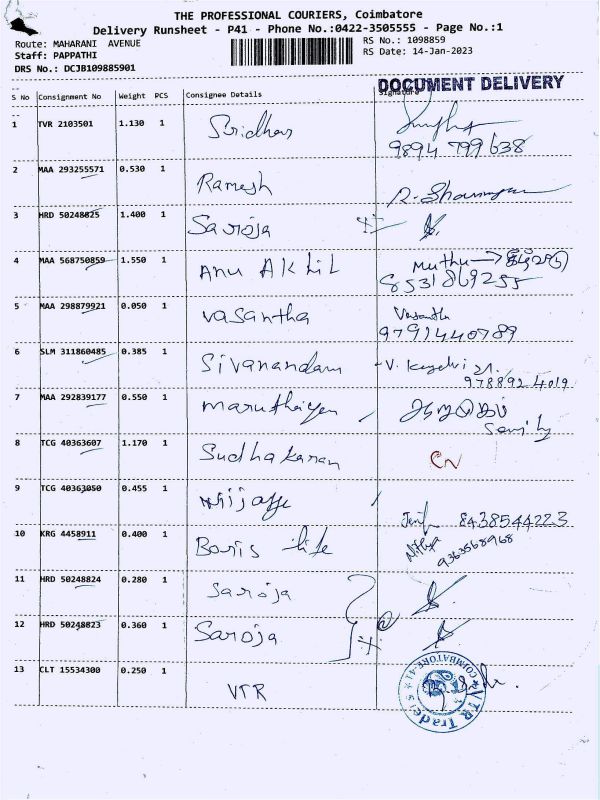 THE PROFESSIONAL COURIERS, Coimbatore
Delivery Runsheet - P41 - Phone No.:0422-3505555 - Page No.:1
Route: MAHARANI AVENUE RS No.: 1098859
Staff: PAPPATHI RS Date: 14-Jan-2023
DRS No.: DCJB109885901
DOCUMENT DELIVERY
S No Consignment No Weight PCS Consignee Details Signature
1 TVR 2103501 1.130 1 Sridhar
9894 799 638
2 MAA 293255571 0.530 1 Ramesh
3 HRD 50248825 1.400 1 Saroja
4 MAA 568750859 1.550 1 Anu AKhil Muthu
8531869255
5 MAA 298879921 0.050 1 Vasantha Vasantha
9791440789
6 SLM 311860485 0.385 1 Sivanandam
9788924019
7 MAA 292839177 0.550 1
8 TCG 40363607 1.170 1 Sudhakaran
9 TCG 40363050 0.455 1
8438544223
10 KRG 4458911 0.400 1 Boris life Nithya
9363568968
11 HRD 50248824 0.280 1 Saroja
12 HRD 50248823 0.360 1 Saroja
13 CLT 15534300 0.250 1 VTR
VTR Trade
COIMBATORE-41